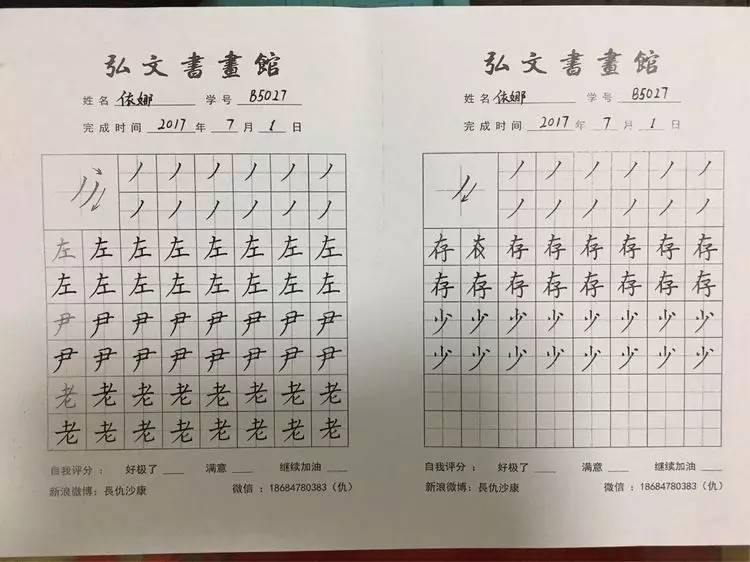 弘文書畫館
姓名 依娜 学号 B5027
完成时间 2017 年 7 月 1 日
丿 丿 丿 丿 丿 丿
丿 丿 丿 丿 丿 丿
左 左 左 左 左 左 左 左
左 左 左 左 左 左 左 左
尹 尹 尹 尹 尹 尹 尹 尹
尹 尹 尹 尹 尹 尹 尹 尹
老 老 老 老 老 老 老 老
老 老 老 老 老 老 老 老
自我评分： 好极了 ___ 满意 ___ 继续加油 ___
新浪微博：長仇沙康 微信：18684780383（仇）
弘文書畫館
姓名 依娜 学号 B5027
完成时间 2017 年 7 月 1 日
丿 丿 丿 丿 丿 丿
丿 丿 丿 丿 丿 丿
存 存 存 存 存 存 存
存 存 存 存 存 存 存 存
少 少 少 少 少 少 少 少
少 少 少 少 少 少 少 少
自我评分： 好极了 ___ 满意 ___ 继续加油 ___
新浪微博：長仇沙康 微信：18684780383（仇）